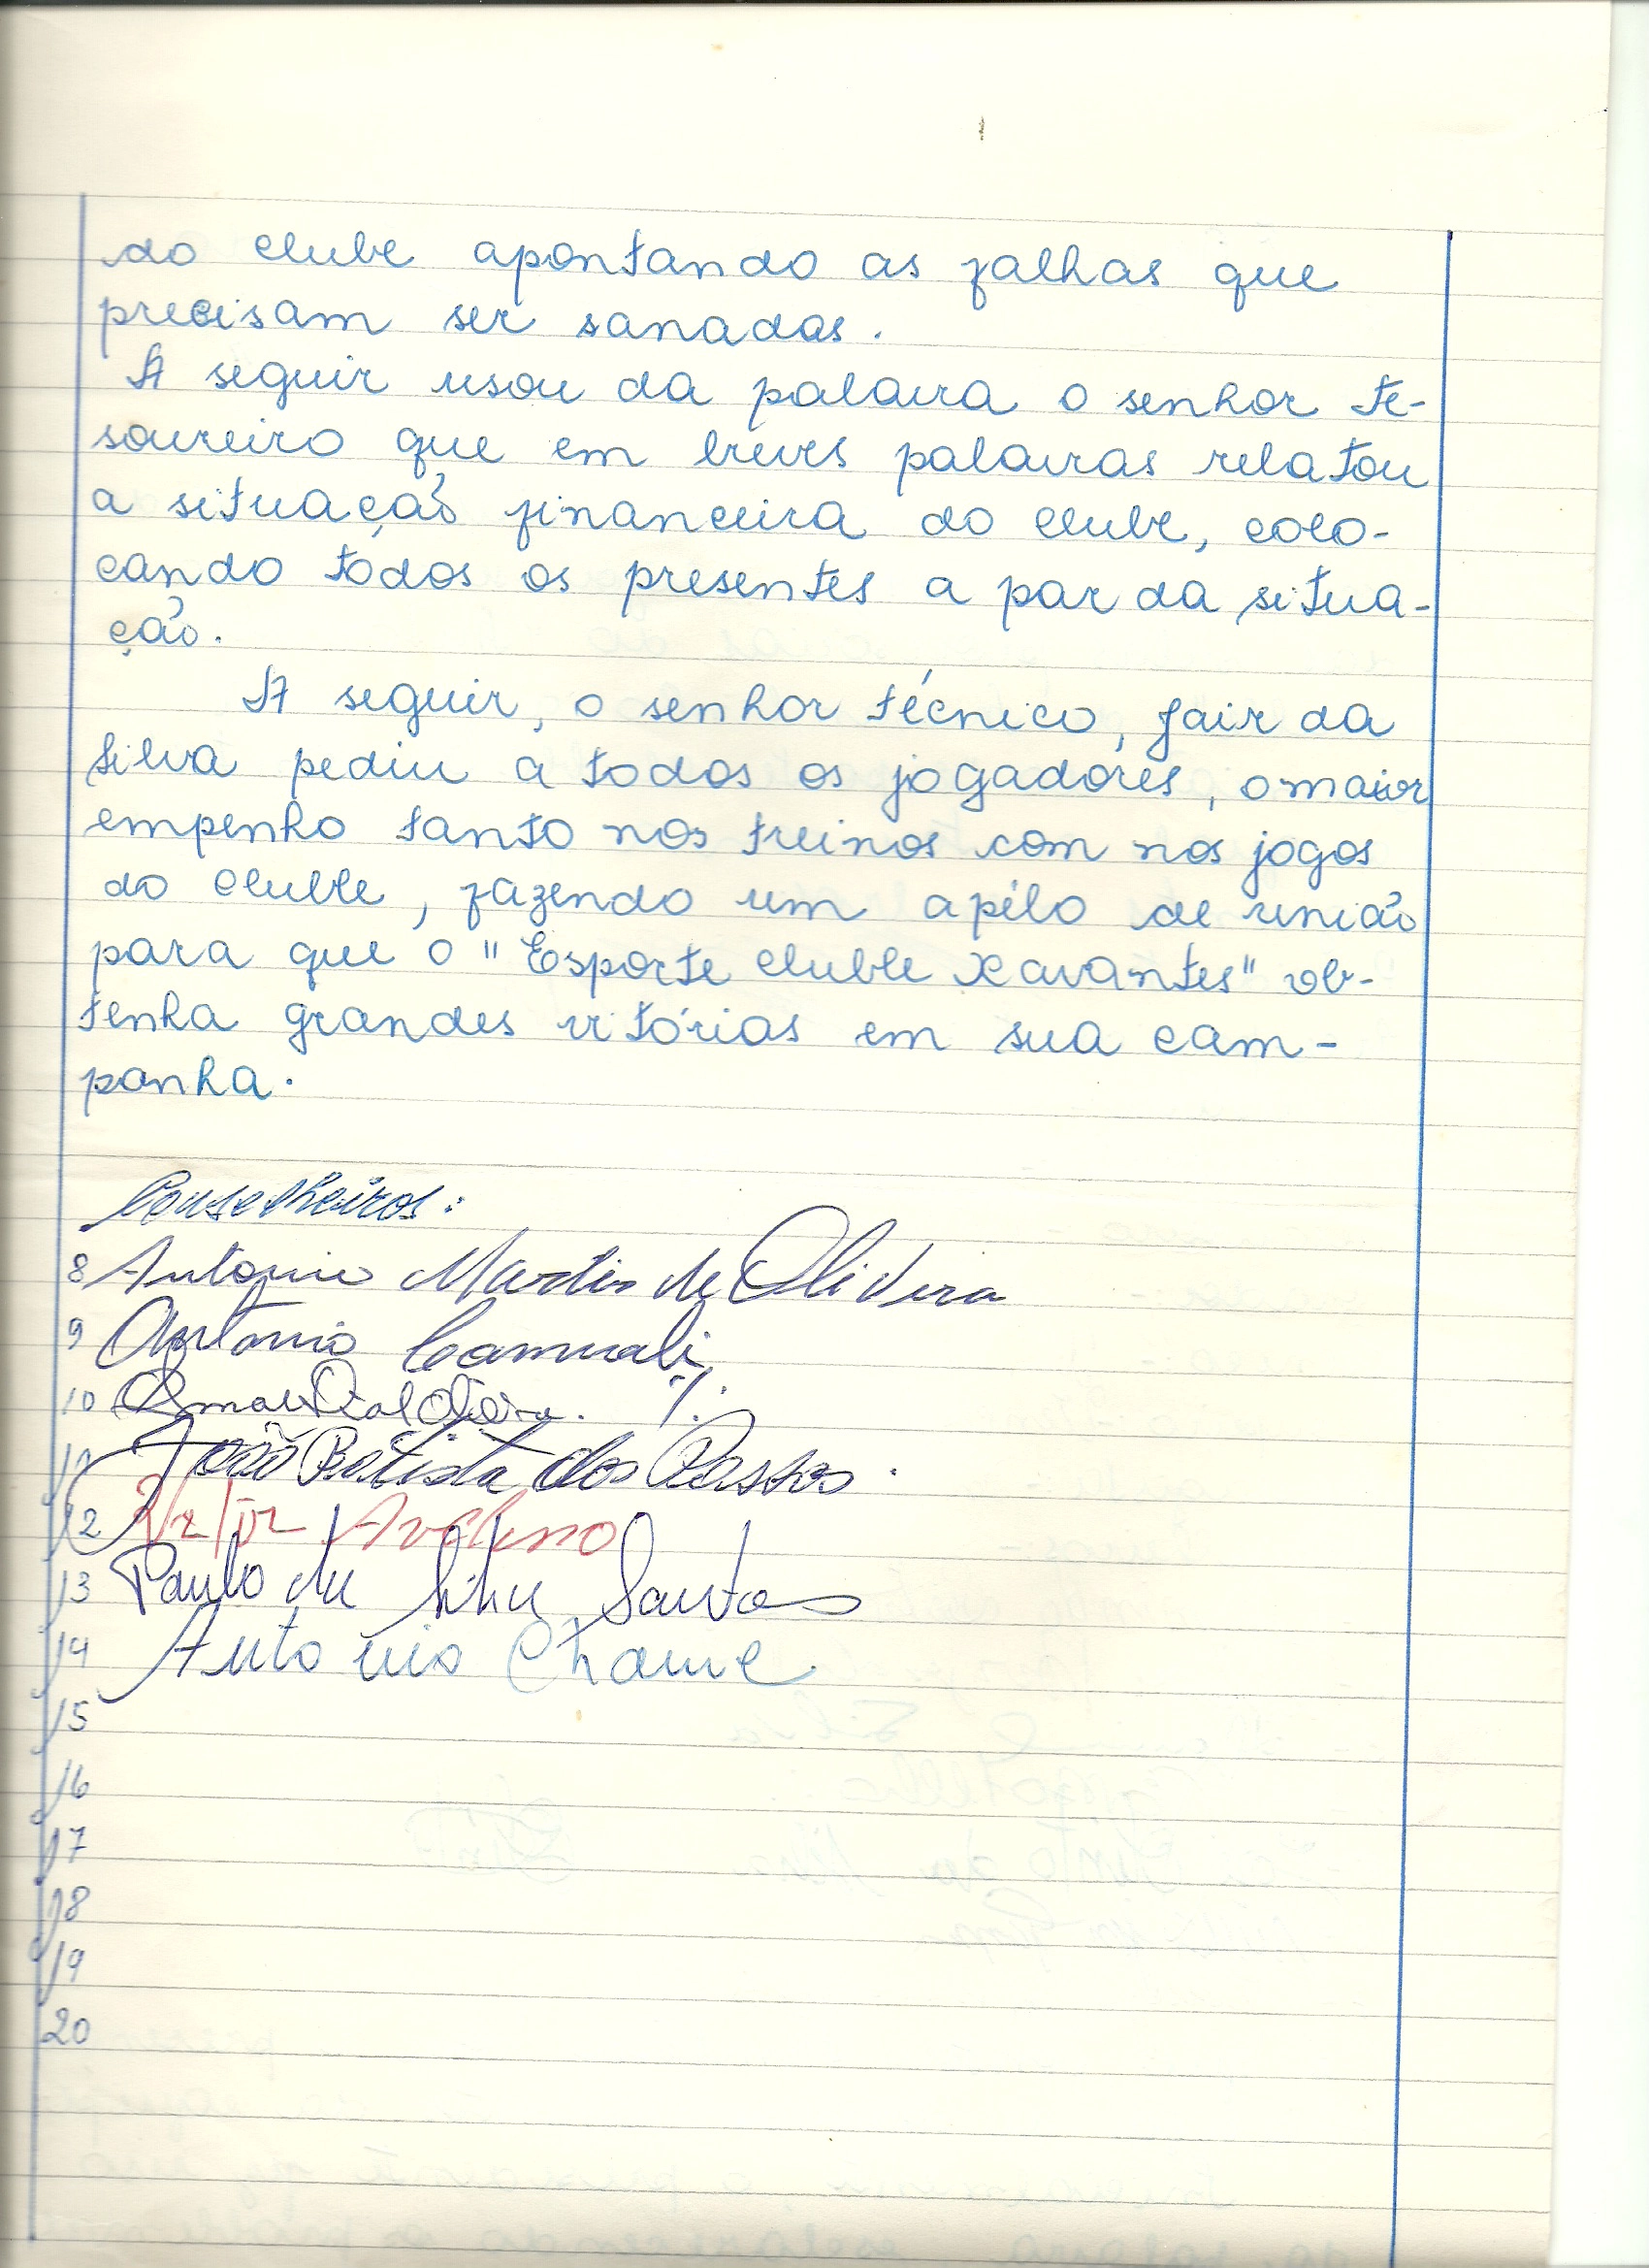 do clube apontando as falhas que
precisam ser sanadas.
A seguir usou da palavra o senhor te-
soureiro que em breves palavras relatou
a situação financeira do clube, colo-
cando todos os presentes a par da situa-
ção.
A seguir, o senhor técnico, Jair da
Silva pediu a todos os jogadores, o maior
empenho tanto nos treinos com nos jogos
do cluble, fazendo um apêlo de união
para que o "Esporte cluble Xavantes" ob-
tenha grandes vitórias em sua cam-
panha.
Conselheiros:
8 Antonio Martins de Oliveira
9 Antonio
10
11 João Batista dos Passos.
12 Avelino
13 Paulo da Silva Santos
14 Antonio Chame
15
16
17
18
19
20